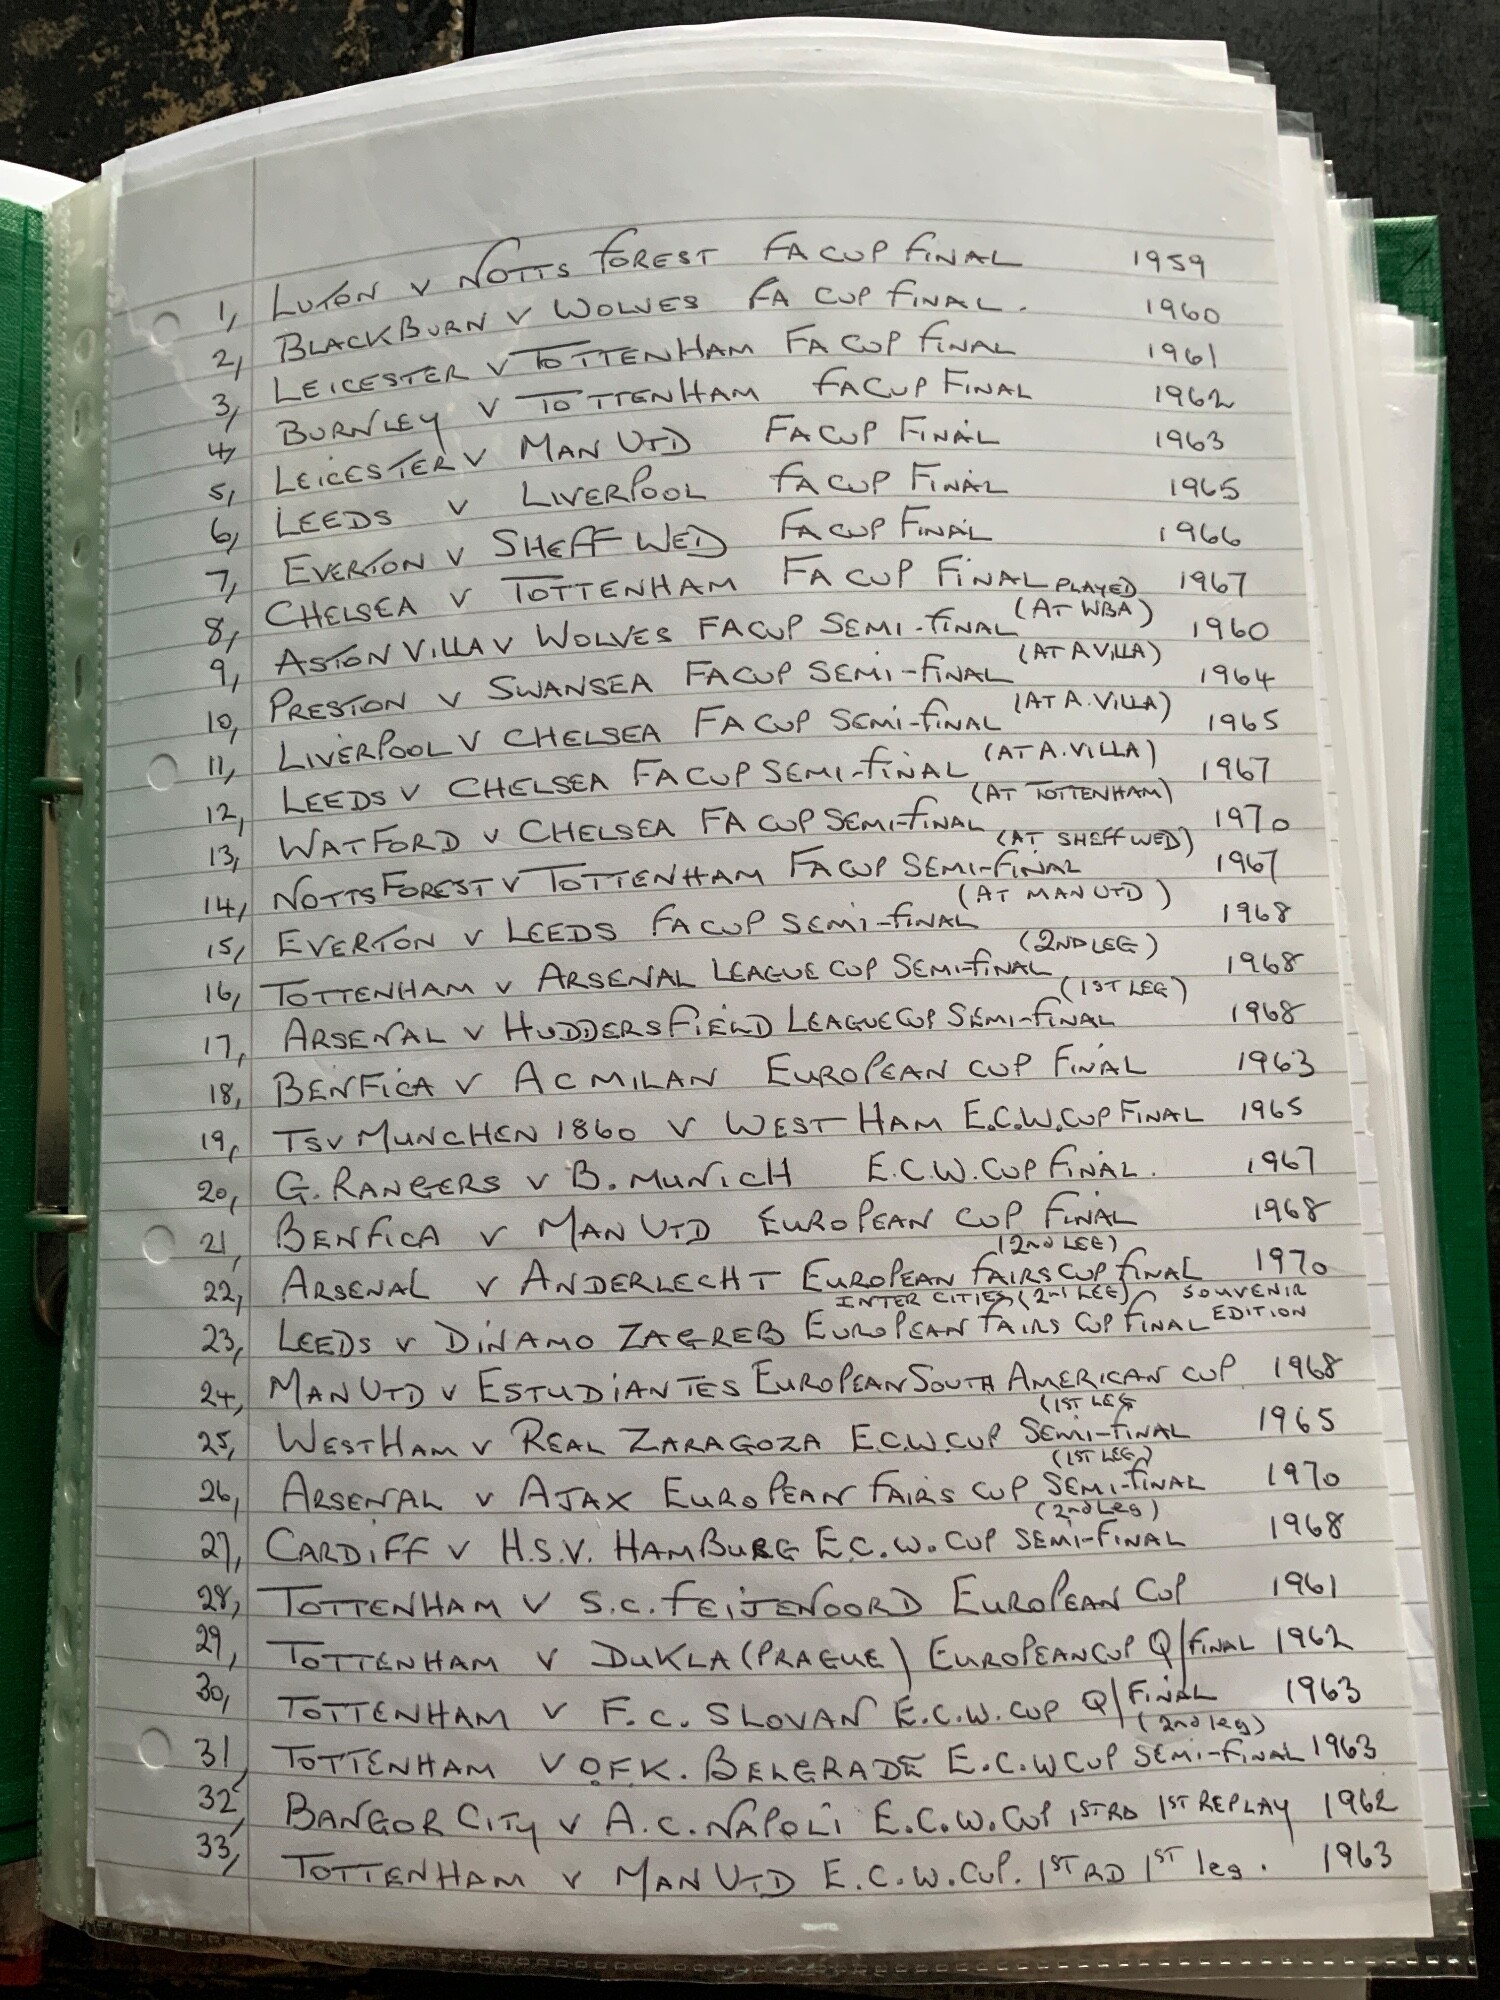 1, LUTON V NOTTS FOREST FA CUP FINAL 1959
2, BLACKBURN V WOLVES FA CUP FINAL. 1960
3, LEICESTER V TOTTENHAM FA CUP FINAL 1961
4, BURNLEY V TOTTENHAM FA CUP FINAL 1962
5, LEICESTER V MAN UTD FA CUP FINAL 1963
6, LEEDS V LIVERPOOL FA CUP FINAL 1965
7, EVERTON V SHEFF WED FA CUP FINAL 1966
8, CHELSEA V TOTTENHAM FA CUP FINAL 1967
PLAYED
9, ASTON VILLA V WOLVES FA CUP SEMI-FINAL (AT WBA) 1960
10, PRESTON V SWANSEA FA CUP SEMI-FINAL (AT A VILLA) 1964
11, LIVERPOOL V CHELSEA FA CUP SEMI-FINAL (AT A. VILLA) 1965
12, LEEDS V CHELSEA FA CUP SEMI-FINAL (AT A. VILLA) 1967
13, WATFORD V CHELSEA FA CUP SEMI-FINAL (AT TOTTENHAM) 1970
14, NOTTS FOREST V TOTTENHAM FA CUP SEMI-FINAL (AT SHEFF WED) 1967
15, EVERTON V LEEDS FA CUP SEMI-FINAL (AT MAN UTD) 1968
16, TOTTENHAM V ARSENAL LEAGUE CUP SEMI-FINAL (2ND LEG) 1968
17, ARSENAL V HUDDERSFIELD LEAGUE CUP SEMI-FINAL (1ST LEG) 1968
18, BENFICA V AC MILAN EUROPEAN CUP FINAL 1963
19, TSV MUNCHEN 1860 V WEST HAM E.C.W.CUP FINAL 1965
20, G. RANGERS V B. MUNICH E.C.W. CUP FINAL. 1967
21, BENFICA V MAN UTD EUROPEAN CUP FINAL 1968
(2nd LEG)
22, ARSENAL V ANDERLECHT EUROPEAN FAIRS CUP FINAL 1970
INTER CITIES (2nd LEG) SOUVENIR
23, LEEDS V DINAMO ZAGREB EUROPEAN FAIRS CUP FINAL EDITION
24, MAN UTD V ESTUDIANTES EUROPEAN SOUTH AMERICAN CUP 1968
(1ST LEG
25, WEST HAM V REAL ZARAGOZA E.C.W.CUP SEMI-FINAL 1965
(1ST LEG)
26, ARSENAL V AJAX EUROPEAN FAIRS CUP SEMI-FINAL 1970
(2nd Leg)
27, CARDIFF V H.S.V. HAMBURG E.C.W. CUP SEMI-FINAL 1968
28, TOTTENHAM V S.C. FEIJENOORD EUROPEAN CUP 1961
29, TOTTENHAM V DUKLA (PRAGUE) EUROPEAN CUP Q/FINAL 1962
30, TOTTENHAM V F.C. SLOVAN E.C.W. CUP Q/FINAL 1963
(2nd leg)
31, TOTTENHAM V O.F.K. BELGRADE E.C.W CUP SEMI-FINAL 1963
32, BANGOR CITY V A.C. NAPOLI E.C.W. CUP 1ST RD 1ST REPLAY 1962
33, TOTTENHAM V MAN UTD E.C.W.CUP. 1ST RD 1ST leg. 1963